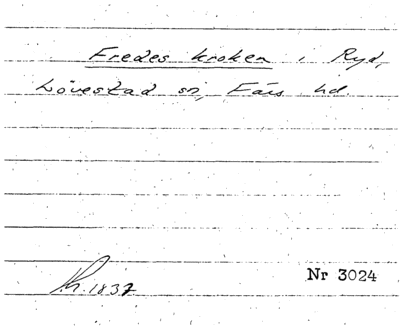 Fredes kroken i Ryd,
Lövestad sn, Färs hd.
Nr 3024
Kh. 1837